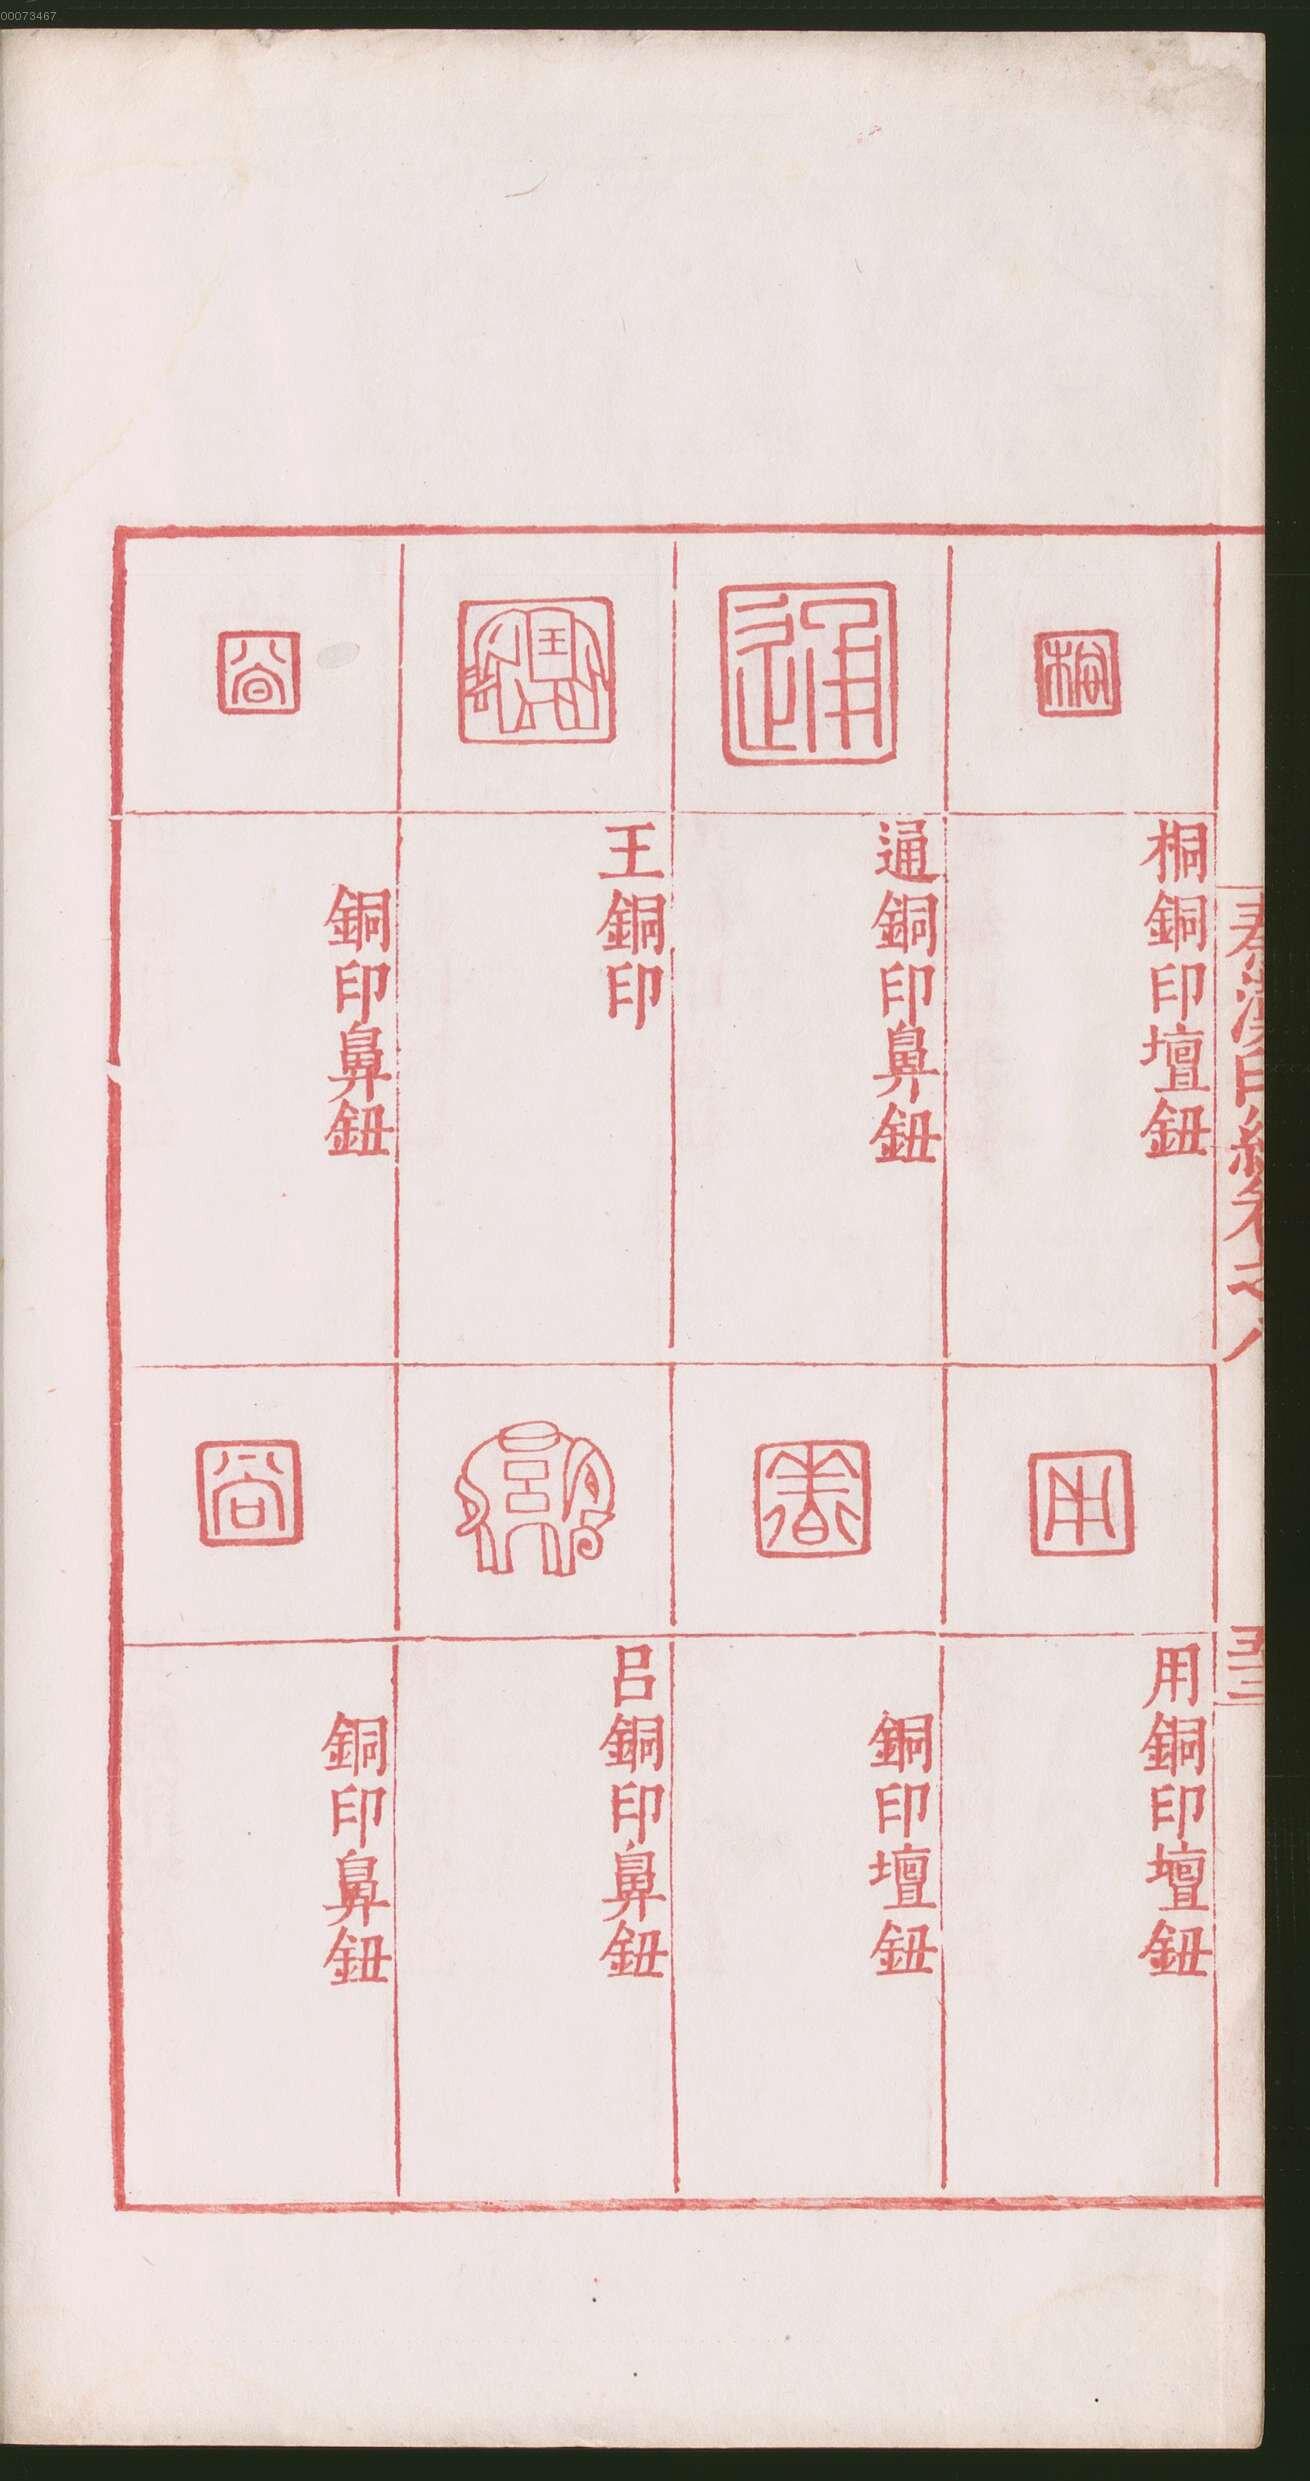 00073467
秦漢印統卷之八
五三
桐銅印壇鈕
用銅印壇鈕
通銅印鼻鈕
銅印壇鈕
王銅印
呂銅印鼻鈕
銅印鼻鈕
銅印鼻鈕
通
王
呂